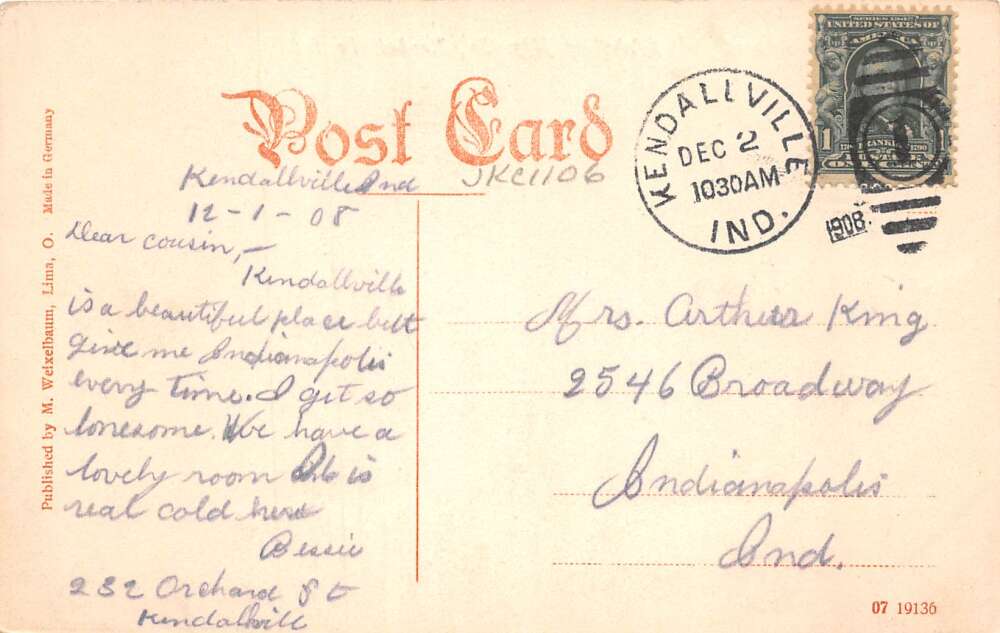 Post Card
SERIES 1902
UNITED STATES OF
AMERICA
1 1
FRANKLIN
1790
ONE CENT
KENDALLVILLE
DEC 2
1030AM
IND.
1908
JKC1106
Kendallville Ind
12-1-08
Dear cousin,—
Kendallville
is a beautiful place but
give me Indianapolis
every time. I get so
lonesome. We have a
lovely room It is
real cold here
Bessie
232 Orchard St
Kendallvill
Mrs. Arthur King
2546 Broadway
Indianapolis
Ind.
Published by M. Weixelbaum, Lima, O. Made in Germany
07 19136